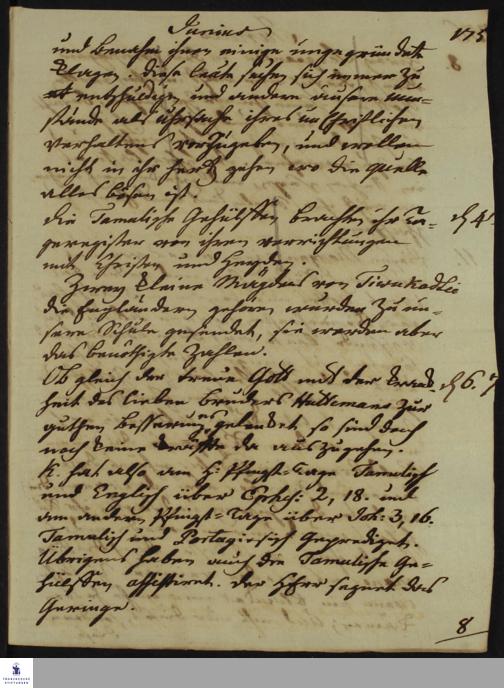 Junius 175
und benahm ihnen einige ungegründete
Klagen. Diese leute suchen sich immer zu
entschuldigen, und andere äusere um-
stände als uhrsache ihres un Christlichen
Verhaltens vorzugeben, und wollen
nicht in ihr hertz gehen wo die quelle
alles bösen ist.
die Tamulische Gehülffen brachten ihr Ta- d 4
geregister von ihren verrichtungen
mit Christen und Heyden.
Zwey Kleine Mägdens von Tirukadei
die Engländern gehören wurden zu un-
sere Schule gesendet, sie werden aber
das benöthigte Zahlen.
Ob gleich der treue Gott mit der Krank- d 6. 7
heit des lieben bruders Hüttemans zur
guthen besserung gelenket, so sind doch
noch keine Kräffte da auszugehen.
K. hat also am H: Pfingst-Tage Tamulisch
und English über 2, 18. und
am andern Pfingst-Tage über Joh: 3, 16.
Tamulisch und Portugiesisch Geprediget.
Übrigens haben auch die Tamulische Ge-
hülffen assistiret. der HErr segne das
Geringe.
8
FRANCKESCHE
STIFTUNGEN